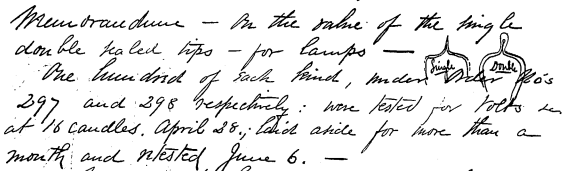 Memorandum — On the value of the single
double sealed tips — for lamps —
Single Double
One hundred of each kind, under Order Nos
297 and 298 respectively: were tested for Volts
at 16 candles. April 28.; laid aside for more than a
month and retested June 6. —